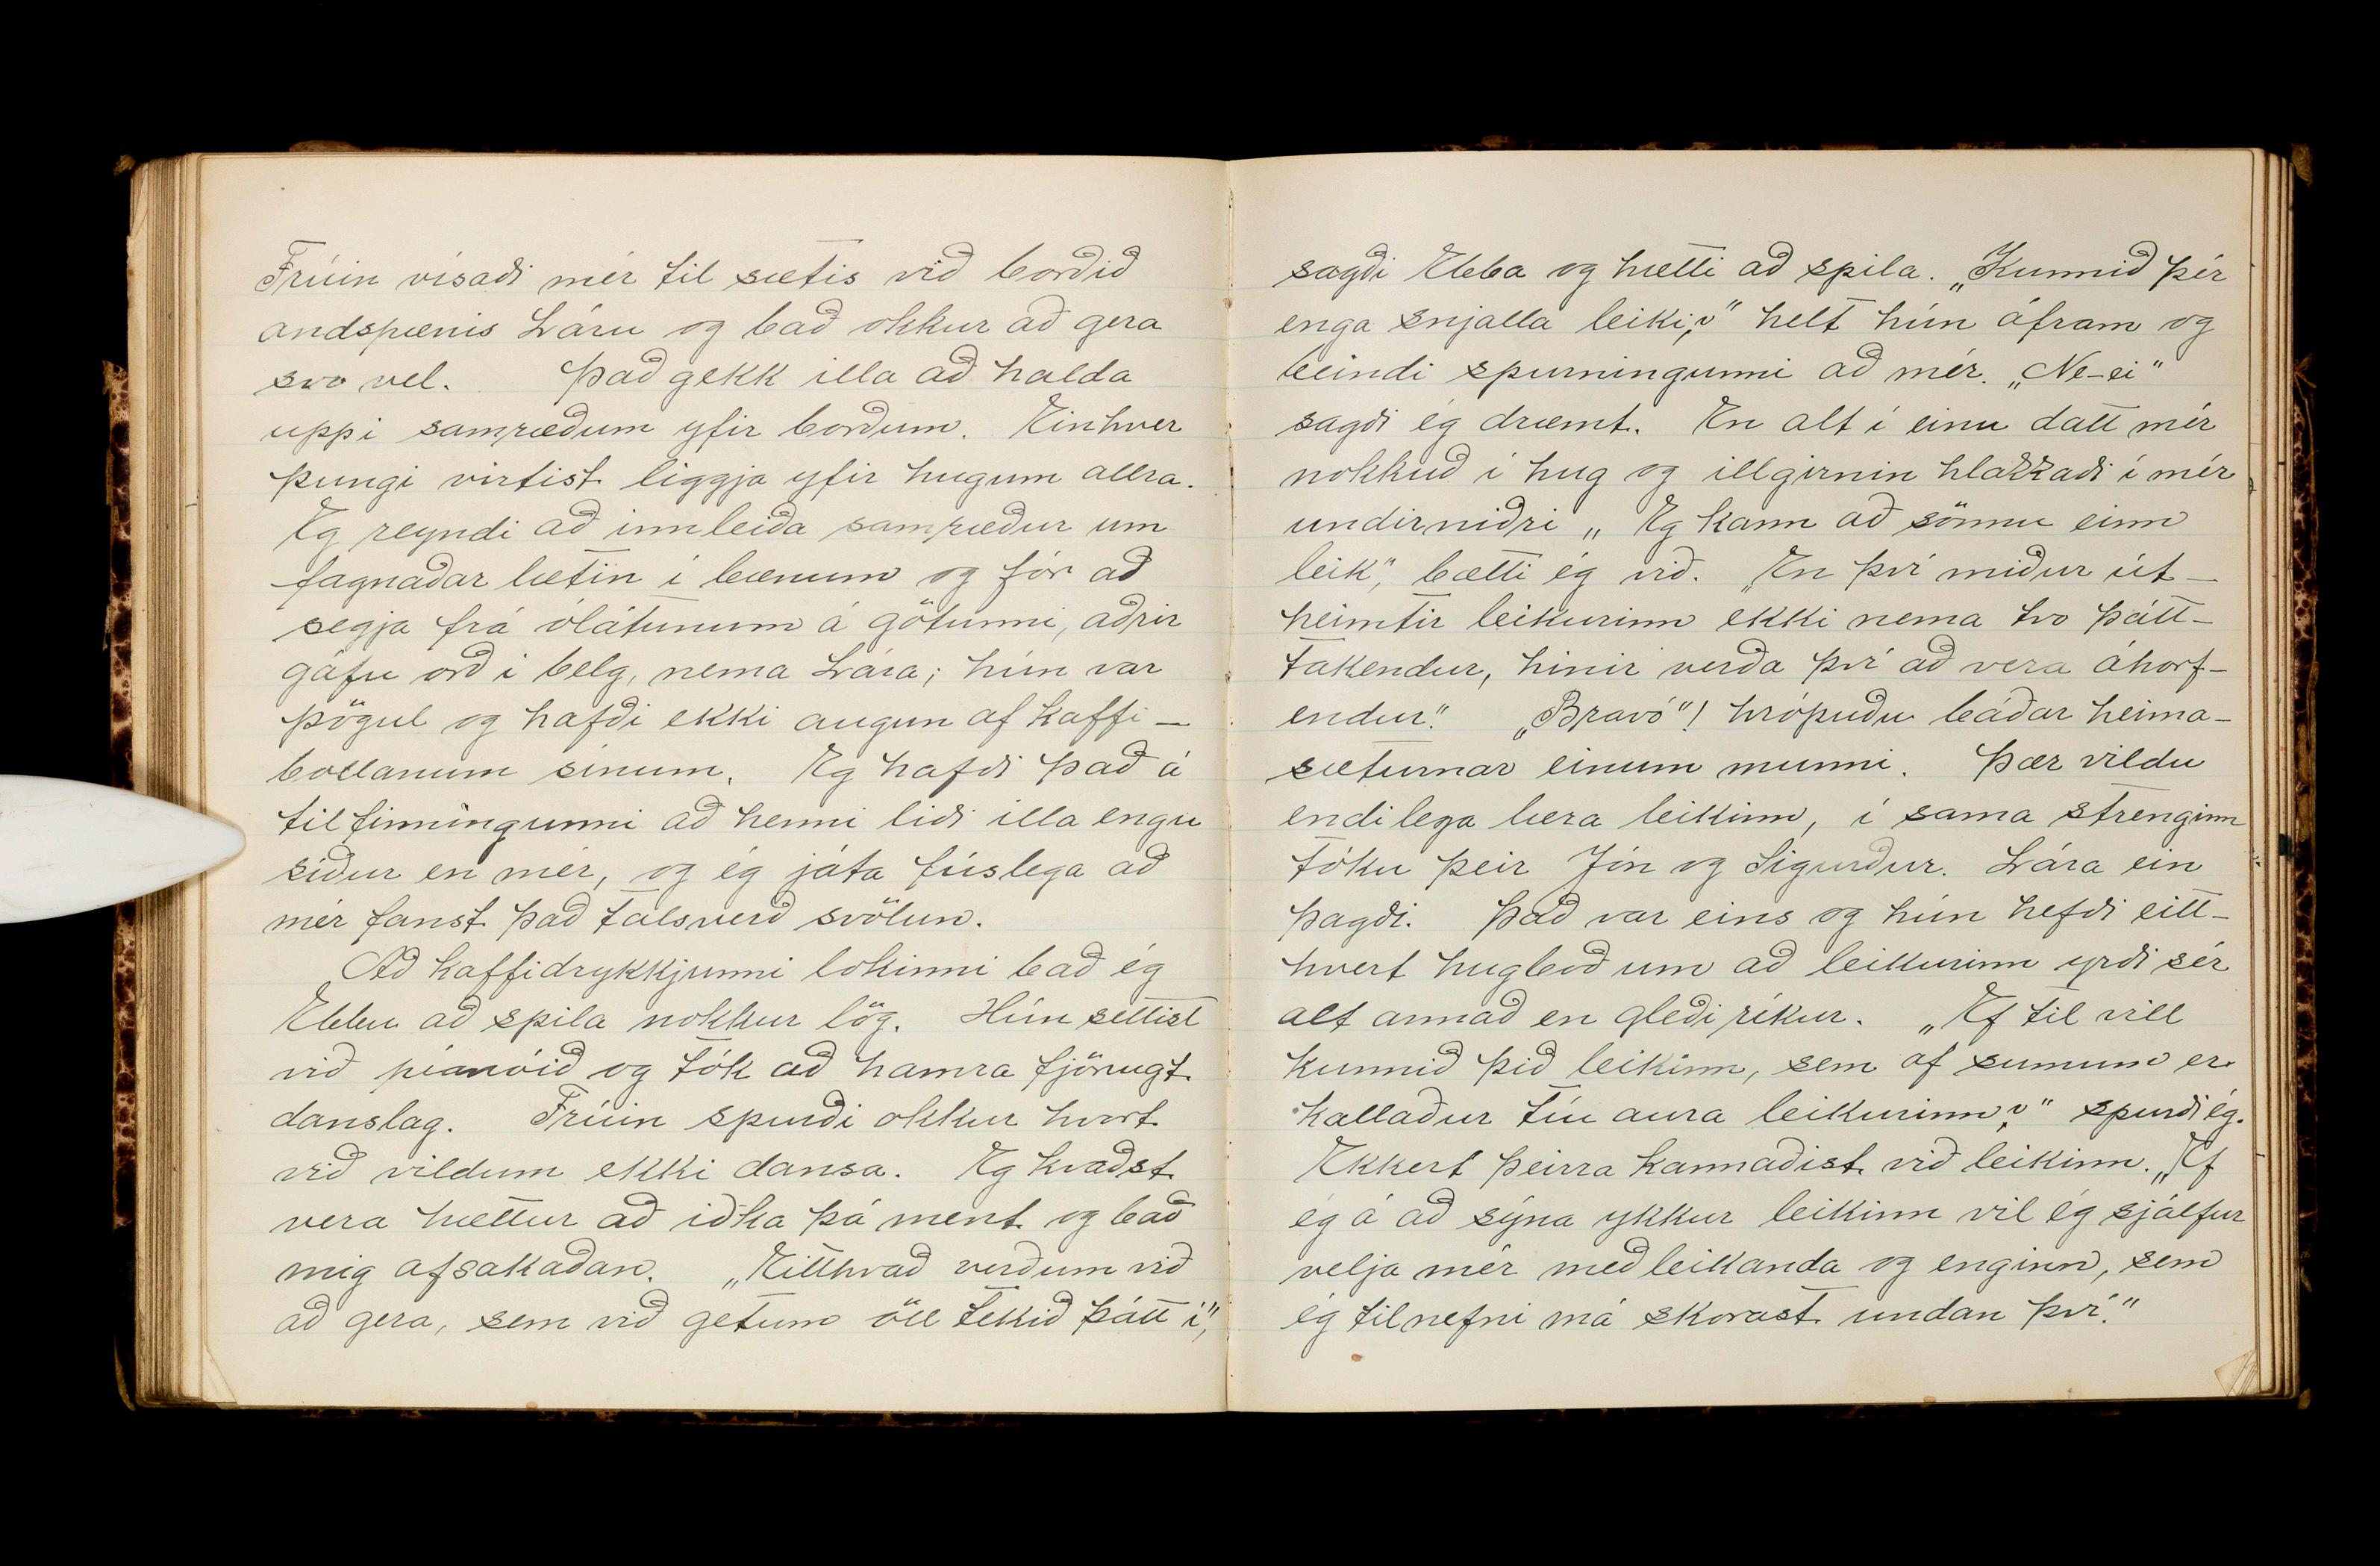 Frúin vísaði mér til sætis við borðið
andspænis Láru og bað okkur að gera
svo vel. Það gekk illa að halda
uppi samræðum yfir borðum. Einhver
þungi virtist liggja yfir hugum allra.
Eg reyndi að innleiða samræður um
fagnaðar lætin í bænum og fór að
segja frá ólátunum á götunni, aðrir
gáfu orð í belg, nema Lára; hún var
þögul og hafði ekki augun af kaffi-
bollanum sínum. Eg hafði það á
tilfinningunni að henni liði illa engu
síður en mér, og ég játa fúslega að
mér fanst það talsverð svölun.
Að kaffidrykkjunni lokinni bað ég
Ebbu að spila nokkur lög. Hún settist
við píanóið og tók að hamra fjörugt
danslag. Frúin spurði okkur hvort
við vildum ekki dansa. Eg kvaðst
vera hættur að iðka þá ment og bað
mig afsakaðan. „Eitthvað verðum við
að gera, sem við getum öll tekið þátt í",
sagði Ebba og hætti að spila. „Kunnið þér
enga snjalla leiki?" helt hún áfram og
beindi spurningunni að mér. „Ne-ei"
sagði ég dræmt. En alt í einu datt mér
nokkuð í hug og illgirnin hlakkaði í mér
undirniðri „Eg kann að sönnu einn
leik", bætti ég við. „En því miður út-
heimtir leikurinn ekki nema tvo þátt-
takendur, hinir verða því að vera áhorf-
endur". „Bravó"! hrópuðu báðar heima-
sæturnar einum munni. Þær vildu
endilega læra leikinn, í sama strenginn
tóku þeir Jón og Sigurður. Lára ein
þagði. Það var eins og hún hefði eitt-
hvert hugboð um að leikurinn yrði sér
alt annað en gleði ríkur. „Ef til vill
kunnið þið leikinn, sem af sumum er
kallaður tíu aura leikurinn?" spurði ég.
Ekkert þeirra kannaðist við leikinn. „Ef
ég á að sýna ykkur leikinn vil ég sjálfur
velja mér meðleikanda og enginn, sem
ég tilnefni má skorast undan því."